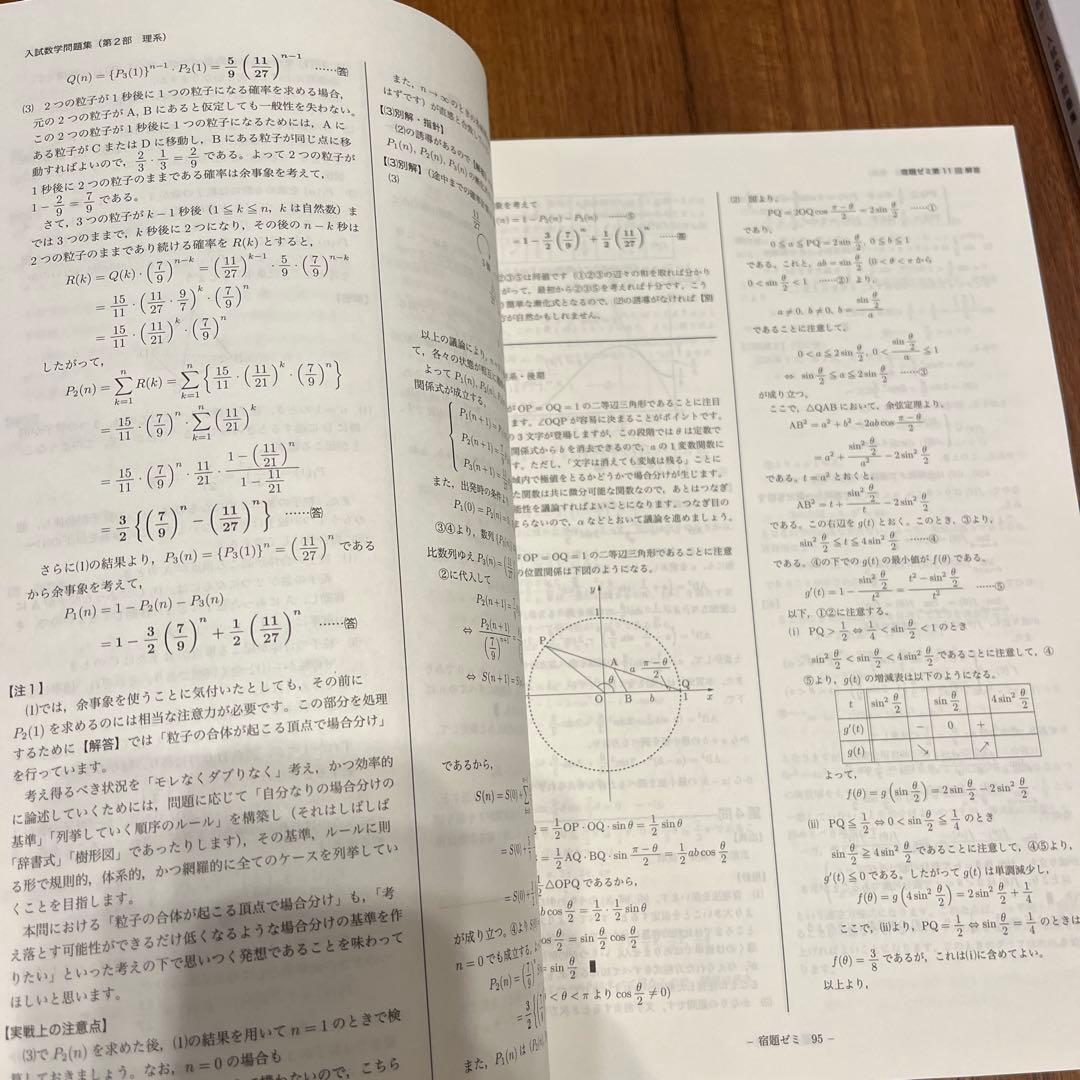 入試数学問題集（第２部　理系）
Q(n) = {P₃(1)}ⁿ⁻¹・P₂(1) = 5/9 (11/27)ⁿ⁻¹ ……答
(3)　２つの粒子が１秒後に１つの粒子になる確率を求める場合，
元の２つの粒子が A, B にあると仮定しても一般性を失わない。
この２つの粒子が１秒後に１つの粒子になるためには，A に
ある粒子が C または D に移動し，B にある粒子が同じ点に移
動すればよいので，2/3・1/3 = 2/9 である。よって２つの粒子が
１秒後に２つの粒子のままである確率は余事象を考えて，
1 − 2/9 = 7/9 である。
さて，３つの粒子が k−1 秒後（1 ≦ k ≦ n, k は自然数）ま
では３つのままで，k 秒後に２つになり，その後の n−k 秒は
２つの粒子のままであり続ける確率を R(k) とすると，
R(k) = Q(k)・(7/9)ⁿ⁻ᵏ = (11/27)ᵏ⁻¹・5/9・(7/9)ⁿ⁻ᵏ
= 15/11・(11/27・9/7)ᵏ・(7/9)ⁿ
= 15/11・(11/21)ᵏ・(7/9)ⁿ
したがって，
P₂(n) = Σ[k=1..n] R(k) = Σ[k=1..n] {15/11・(11/21)ᵏ・(7/9)ⁿ}
= 15/11・(7/9)ⁿ・Σ[k=1..n] (11/21)ᵏ
= 15/11・(7/9)ⁿ・11/21・(1 − (11/21)ⁿ)/(1 − 11/21)
= 3/2 {(7/9)ⁿ − (11/27)ⁿ} ……答
さらに(1)の結果より，P₃(n) = {P₃(1)}ⁿ = (11/27)ⁿ である
から余事象を考えて，
P₁(n) = 1 − P₂(n) − P₃(n)
= 1 − 3/2 (7/9)ⁿ + 1/2 (11/27)ⁿ ……答
【注１】
(1)では，余事象を使うことに気付いたとしても，その前に
P₂(1) を求めるのには相当な注意力が必要です。この部分を処理
するために【解答】では「粒子の合体が起こる頂点で場合分け」
を行っています。
考え得るべき状況を「モレなくダブりなく」考え，かつ効率的
に論述していくためには，問題に応じて「自分なりの場合分けの
基準」「列挙していく順序のルール」を構築し（それはしばしば
「辞書式」「樹形図」であったりします），その基準，ルールに則
る形で規則的，体系的，かつ網羅的に全てのケースを列挙してい
くことを目指します。
本問における「粒子の合体が起こる頂点で場合分け」も，「考
え落とす可能性ができるだけ低くなるような場合分けの基準を作
りたい」といった考えの下で思いつく発想であることを味わって
ほしいと思います。
【実戦上の注意点】
(3)で P₂(n) を求めた後，(1)の結果を用いて n = 1 のときで検
算しておきましょう。なお，n = 0 の場合も
また，n → ∞ のとき
はずです）が直感と合致
【(3)別解・指針】
(2)の誘導があるので
P₁(n), P₂(n), P₃(n) の
【(3)別解】（途中までの
(3)
11/27
以上の議論により，
て，各々の状態が
よって P₁(n), P₂(n),
関係式が成立する。
P₁(n+1) =
P₂(n+1) =
P₃(n+1) =
また，出発時の条件
P₁(0) = P₂(0) =
③④より，数列
比数列ゆえ P₃(n) = (11/27)
②に代入して
P₂(n+1) =
⇔ P₂(n+1)/(7/9)
⇔ S(n+1) =
であるから，
S(n) = S(0) +
= S(0) +
= S(0) +
が成り立つ。④より
n = 0 でも成立する。
P₂(n) = (7/9)
= 3/2
また，P₁(n) は
宿題ゼミ第１１回 解答
数を考えて
(n) = 1 − P₂(n) − P₃(n) ……⑤
= 1 − 3/2 (7/9)ⁿ + 1/2 (11/27)ⁿ ……答
②③⑤は同値です（①②③の辺々の和を取れば分かり
がって，最初から②③⑤を考えれば十分です。こう
り簡単な漸化式となるので，(2)の誘導がなければ【別
方が自然かもしれません。
系・後期
が OP = OQ = 1 の二等辺三角形であることに注目
ます。∠OQP が容易に決まることがポイントです。
の３文字が登場しますが，この段階では θ は定数で
関係式から b を消去できるので，a の１変数関数に
す。ただし，「文字は消えても変域は残る」ことに
域内で極値をとるかどうかで場合分けが生じます。
た関数は共に微分可能な関数なので，あとはつなぎ
能性を議論すればよいことになります。つなぎ目の
まらないので，α などとおいて議論を進めましょう。
OP = OQ = 1 の二等辺三角形であることに注意
の位置関係は下図のようになる。
y
P
A
a
(π−θ)/2
θ
Q
O
B
b
1
x
= 1/2 OP・OQ・sin θ = 1/2 sin θ
= 1/2 AQ・BQ・sin (π−θ)/2 = 1/2 ab cos θ/2
1/2 △OPQ であるから，
b cos θ/2 = 1/2・1/2 sin θ
os θ/2 = sin θ/2 cos θ/2
= sin θ/2
< θ < π より cos θ/2 ≠ 0)
(2)　図より，
PQ = 2OQ cos (π−θ)/2 = 2 sin θ/2 ……①
であり，
0 ≦ a ≦ PQ = 2 sin θ/2, 0 ≦ b ≦ 1
である。これと，ab = sin θ/2 (0 < θ < π から
0 < sin θ/2 < 1 ……②) より，
a ≠ 0, b ≠ 0, b = (sin θ/2)/a
であることに注意して，
0 < a ≦ 2 sin θ/2, 0 < (sin θ/2)/a ≦ 1
⇔ sin θ/2 ≦ a ≦ 2 sin θ/2 ……③
が成り立つ。
ここで，△QAB において，余弦定理より，
AB² = a² + b² − 2ab cos (π−θ)/2
= a² + (sin² θ/2)/a² − 2 sin² θ/2
である。t = a² とおくと，
AB² = t + (sin² θ/2)/t − 2 sin² θ/2
である。この右辺を g(t) とおく。このとき，③より，
sin² θ/2 ≦ t ≦ 4 sin² θ/2 ……④
である。④の下での g(t) の最小値が f(θ) である。
g′(t) = 1 − (sin² θ/2)/t² = (t² − sin² θ/2)/t² ……⑤
以下，①②に注意する。
(i)　PQ > 1/2 ⇔ 1/4 < sin θ/2 < 1 のとき
sin² θ/2 < sin θ/2 < 4 sin² θ/2 であることに注意して，④
⑤より，g(t) の増減表は以下のようになる。
t　sin² θ/2　　sin θ/2　　4 sin² θ/2
g′(t)　−　0　+
g(t)　↘　　↗
よって，
f(θ) = g(sin θ/2) = 2 sin θ/2 − 2 sin² θ/2
(ii)　PQ ≦ 1/2 ⇔ 0 < sin θ/2 ≦ 1/4 のとき
sin θ/2 ≧ 4 sin² θ/2 であることに注意して，④⑤より，
g′(t) ≦ 0 である。したがって g(t) は単調減少し，
f(θ) = g(4 sin² θ/2) = 2 sin² θ/2 + 1/4
ここで，(ii)より，PQ = 1/2 ⇔ sin θ/2 = 1/4 のときは
f(θ) = 3/8 であるが，これは(i)に含めてよい。
以上より，
− 宿題ゼミ 95 −